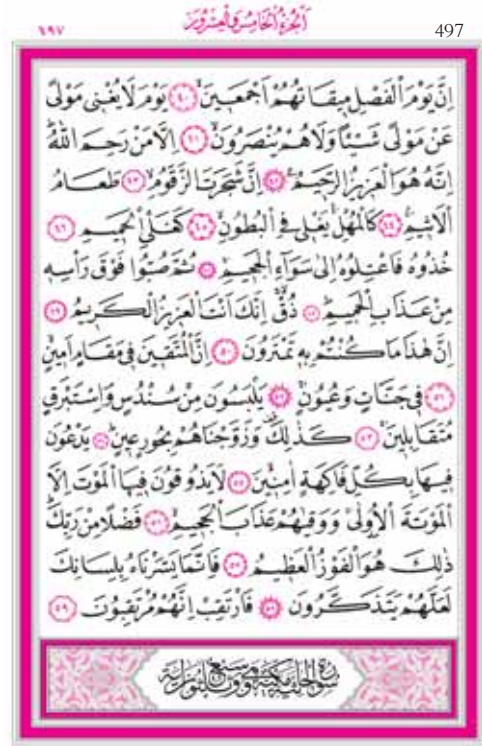 اَلْجُزْءُ الْخَامِسُ وَالْعِشْرُونَ
٤٩٧
497
اِنَّ يَوْمَ الْفَصْلِ مٖيقَاتُهُمْ اَجْمَعٖينَۙ ﴿٤٠﴾ يَوْمَ لَا يُغْنٖى مَوْلًى
عَنْ مَوْلًى شَيْـًٔا وَلَا هُمْ يُنْصَرُونَۙ ﴿٤١﴾ اِلَّا مَنْ رَحِمَ اللّٰهُؕ
اِنَّهُ هُوَ الْعَزٖيزُ الرَّحٖيمُࣖ ﴿٤٢﴾ اِنَّ شَجَرَتَ الزَّقُّومِۙ ﴿٤٣﴾ طَعَامُ
الْاَثٖيمِۚ ﴿٤٤﴾ كَالْمُهْلِۚ يَغْلٖى فِى الْبُطُونِۙ ﴿٤٥﴾ كَغَلْىِ الْحَمٖيمِ ﴿٤٦﴾
خُذُوهُ فَاعْتِلُوهُ اِلٰى سَوَٓاءِ الْجَحٖيمِۚ ﴿٤٧﴾ ثُمَّ صُبُّوا فَوْقَ رَاْسِهٖ
مِنْ عَذَابِ الْحَمٖيمِؕ ﴿٤٨﴾ ذُقْۚ اِنَّكَ اَنْتَ الْعَزٖيزُ الْكَرٖيمُ ﴿٤٩﴾
اِنَّ هٰذَا مَا كُنْتُمْ بِهٖ تَمْتَرُونَ ﴿٥٠﴾ اِنَّ الْمُتَّقٖينَ فٖى مَقَامٍ اَمٖينٍۙ
﴿٥١﴾ فٖى جَنَّاتٍ وَعُيُونٍۚ ﴿٥٢﴾ يَلْبَسُونَ مِنْ سُنْدُسٍ وَاِسْتَبْرَقٍ
مُتَقَابِلٖينَۚ ﴿٥٣﴾ كَذٰلِكَ وَزَوَّجْنَاهُمْ بِحُورٍ عٖينٍؕ ﴿٥٤﴾ يَدْعُونَ
فٖيهَا بِكُلِّ فَاكِهَةٍ اٰمِنٖينَۙ ﴿٥٥﴾ لَا يَذُوقُونَ فٖيهَا الْمَوْتَ اِلَّا
الْمَوْتَةَ الْاُولٰىۚ وَوَقٰيهُمْ عَذَابَ الْجَحٖيمِۙ ﴿٥٦﴾ فَضْلًا مِنْ رَبِّكَؕ
ذٰلِكَ هُوَ الْفَوْزُ الْعَظٖيمُ ﴿٥٧﴾ فَاِنَّمَا يَسَّرْنَاهُ بِلِسَانِكَ
لَعَلَّهُمْ يَتَذَكَّرُونَ ﴿٥٨﴾ فَارْتَقِبْ اِنَّهُمْ مُرْتَقِبُونَ ﴿٥٩﴾